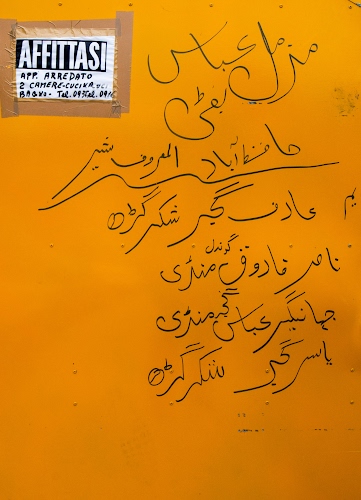 AFFITTASI
APP. ARREDATO
2 CAMERE-CUCINA
BAGNO - Tel.
مزمل عباس
حافظ آباد المعروف شیر
عارف گجر شکرگڑھ
ناصر فاروق گوندل منڈی
جہانگیر عباس گجر منڈی
یاسر گجر شکرگڑھ